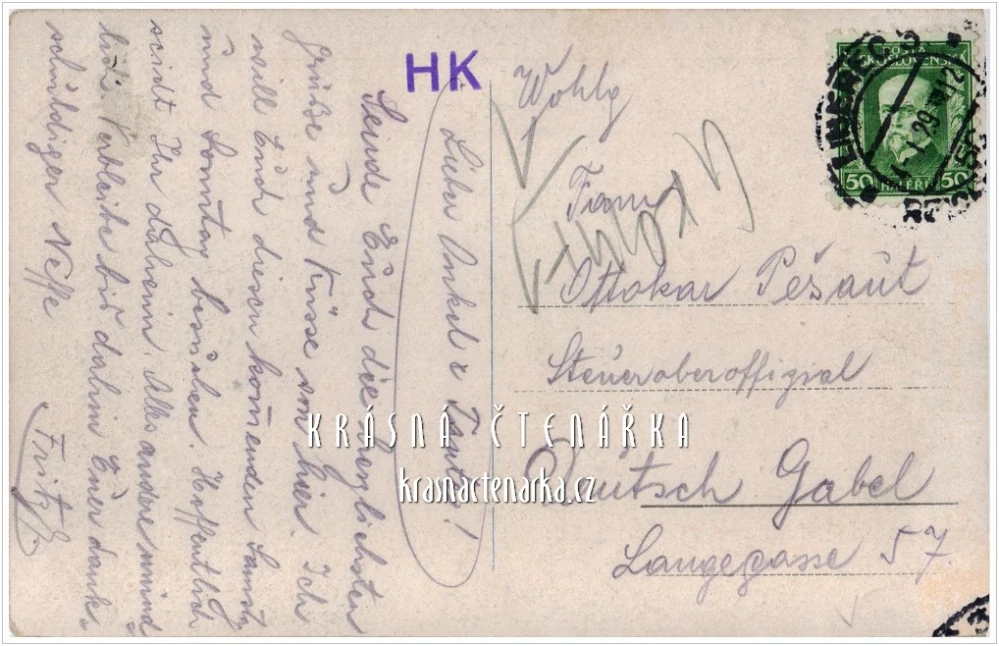 HK
Lieber Onkel & Tante!
Sende Euch die herzlichsten
Grüße und Küsse von hier. Ich
will Euch diesen kommenden Samstg
und Sonntag besuchen. Hoffentlich
seidt Ihr daheim. Alles andere mind
lich. Verbleibe bis dahin Euer dank-
schuldiger Neffe
Fritz.
Wohlg
Ottokar Pešaut
Steueroberoffizial
Deutsch Gabel
Langegasse 57
LIBEREC 3
POŠTA
ČESKOSLOVENSKÁ
50 HALÉŘŮ 50
KRÁSNÁ ČTENÁŘKA
krasnactenarka.cz